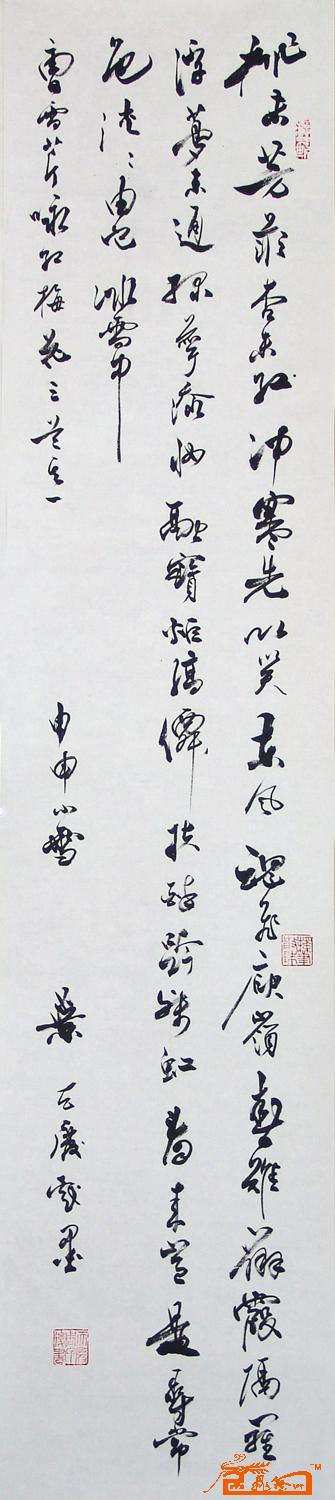 桃未芳菲杏未红冲寒先以笑东风魂飞庾岭春难辨霞隔罗
浮梦未通绿萼添妆融寶炬缟僊扶醉跨残虹看来岂是寻常
色淡〻由他冰雪中
曹雪芹咏红梅花三首之一
甲申小雪 葉庆戏墨